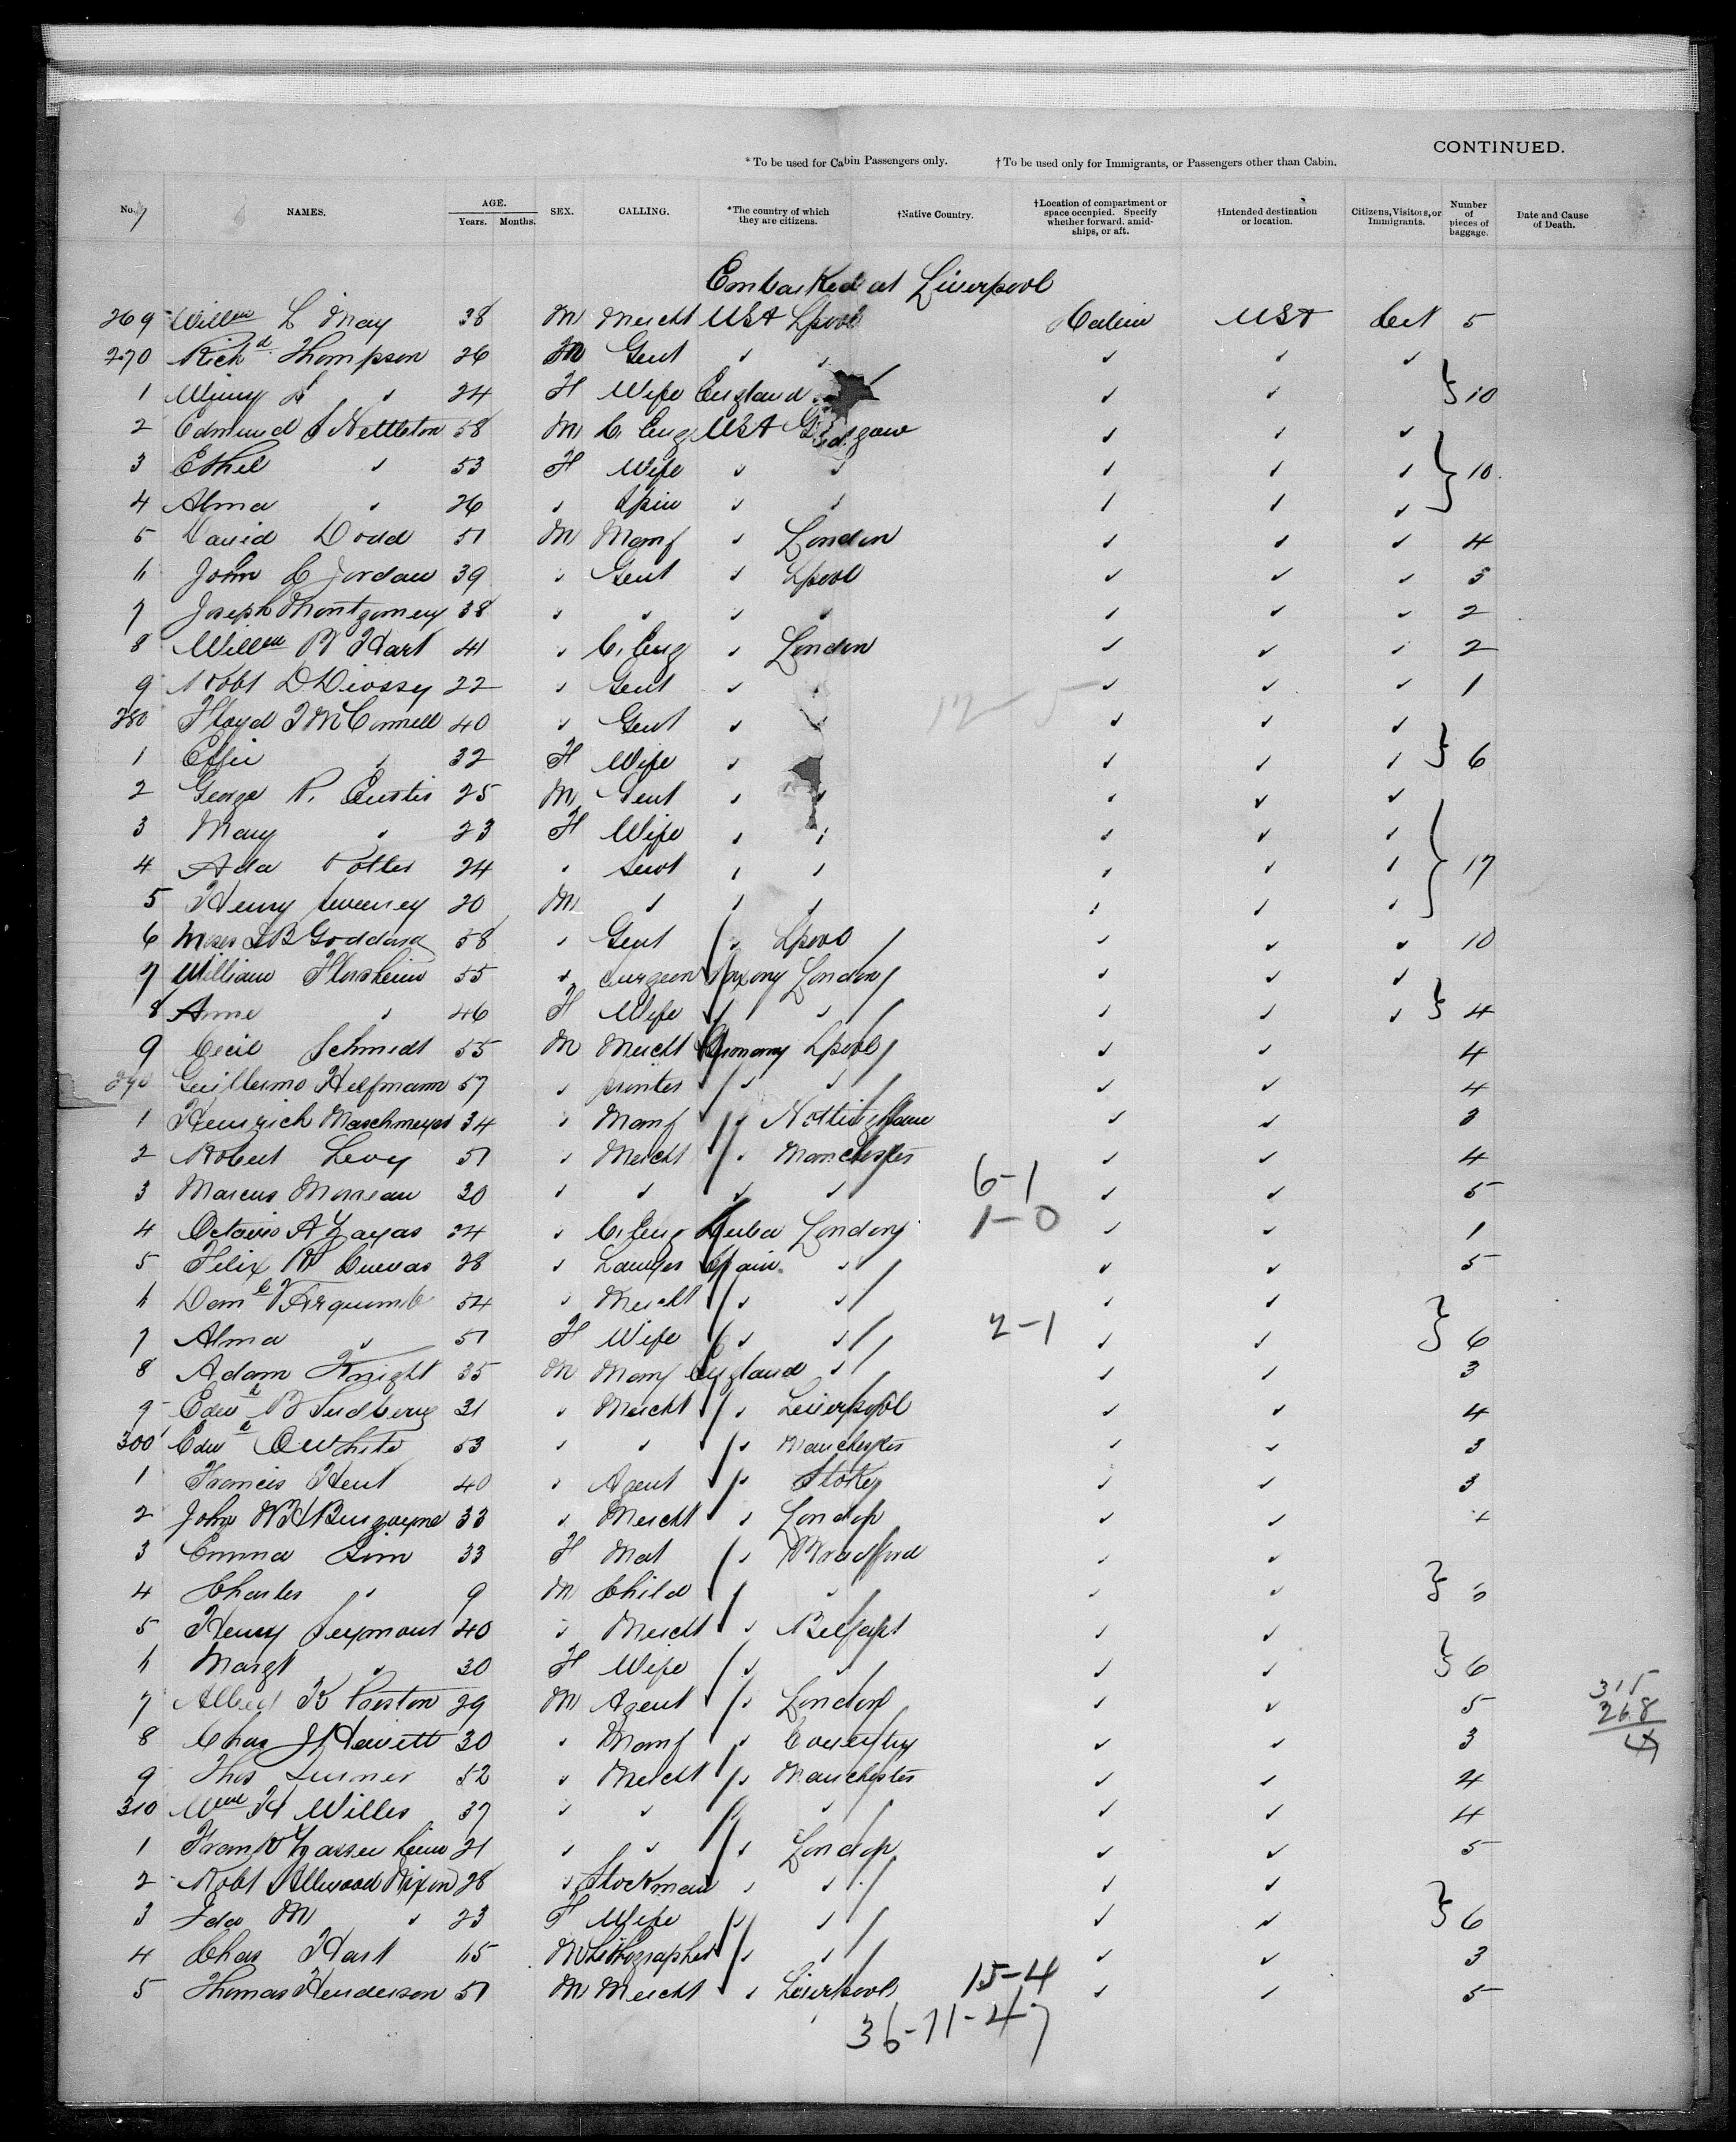 CONTINUED.
* To be used for Cabin Passengers only. † To be used only for Immigrants, or Passengers other than Cabin.
No. NAMES. AGE. Years. Months. SEX. CALLING. *The country of which they are citizens. †Native Country. †Location of compartment or space occupied. Specify whether forward, amidships, or aft. †Intended destination or location. Citizens, Visitors, or Immigrants. Number of pieces of baggage. Date and Cause of Death.
Embarked at Liverpool
269 Willm L May 38 M Mercht USA Lpool Cabin USA Cit 5
270 Richd Thompson 26 M Gent ✓ ✓ ✓ ✓ ✓
1 Minny ✓ 24 F Wife England ✓ ✓ 10
2 Edmund Nettleton 58 M C. Eng USA Glasgow ✓ ✓ ✓
3 Ethel ✓ 53 F Wife ✓ ✓ ✓ ✓ ✓ 10
4 Alma ✓ 26 ✓ Spin ✓ ✓ ✓ ✓ ✓
5 David Dodd 51 M Manf ✓ London ✓ ✓ ✓ 4
6 John C Jordan 39 ✓ Gent ✓ Lpool ✓ ✓ ✓ 3
7 Joseph Montgomery 38 ✓ ✓ ✓ ✓ ✓ ✓ ✓ 2
8 Willm B Hart 41 ✓ C. Eng ✓ London ✓ ✓ ✓ 2
9 Robt D 22 ✓ Gent ✓ ✓ ✓ ✓ ✓ 1
12-5
280 Floyd McConnell 40 ✓ Gent ✓ ✓ ✓ ✓ ✓
1 Effie ✓ 32 F Wife ✓ ✓ ✓ ✓ 6
2 George P. Eustis 25 M Gent ✓ ✓ ✓ ✓ ✓
3 Mary ✓ 23 F Wife ✓ ✓ ✓ ✓ ✓
4 Ada Potter 24 ✓ Servt ✓ ✓ ✓ ✓ ✓ 17
5 Henry Sweeney 20 M ✓ ✓ ✓ ✓ ✓ ✓
6 Moses Goddard 58 ✓ Gent ✓ Lpool ✓ ✓ ✓ 10
7 William Florsheim 55 ✓ Surgeon Saxony London ✓ ✓ ✓
8 Anne ✓ 46 F Wife ✓ ✓ ✓ ✓ ✓ 4
9 Cecil Schmidt 55 M Mercht Germany Lpool ✓ ✓ 4
290 Guillermo Helfmann 57 ✓ printer ✓ ✓ ✓ ✓ 4
1 Heinrich Maschmeyer 34 ✓ Manf ✓ Nottingham ✓ ✓ 3
2 Robert Levy 51 ✓ Mercht ✓ Manchester ✓ ✓ 4
6-1
3 Marcus Morreau 30 ✓ ✓ ✓ ✓ ✓ ✓ 5
1-0
4 Octavio A Zayas 24 ✓ C. Eng Cuba London ✓ ✓ 1
5 Felix Cuevas 28 ✓ Lawyer Spain ✓ ✓ ✓ 5
6 54 ✓ Mercht ✓ ✓ ✓ ✓
7 Alma ✓ 51 F Wife ✓ ✓ 2-1 ✓ ✓ 6
8 Adam Knight 35 M Manf England ✓ ✓ ✓ 3
9 Edwd B Sudbery 31 ✓ Mercht ✓ Liverpool ✓ ✓ 4
300 Edwd O White 53 ✓ ✓ ✓ Manchester ✓ ✓ 3
1 Francis Hent 40 ✓ Agent ✓ Stoke ✓ ✓ 3
2 John Burgoyne 33 ✓ Mercht ✓ London ✓ ✓
3 Emma 33 F Mat ✓ Bradford ✓ ✓
4 Charles ✓ 9 M Child ✓ ✓ ✓
5 Henry Seymour 40 ✓ Mercht ✓ Belfast ✓ ✓
6 Margt ✓ 30 F Wife ✓ ✓ ✓ ✓ 6
7 Albert K Preston 29 M Agent ✓ London ✓ ✓ 5
315
268
47
8 Chas J Hewett 30 ✓ Manf ✓ Coventry ✓ ✓ 3
9 Thos Turner 52 ✓ Mercht ✓ Manchester ✓ ✓ 4
310 Wm H Willis 37 ✓ ✓ ✓ ✓ ✓ 4
1 21 ✓ ✓ ✓ London ✓ ✓ 5
2 Robt Allwood Nixon 28 ✓ Stockman ✓ ✓ ✓ ✓
3 Ida M ✓ 23 F Wife ✓ ✓ ✓ ✓ 6
4 Chas Hart 65 M Lithographer ✓ ✓ ✓ ✓ 3
5 Thomas Henderson 51 M Mercht ✓ Liverpool ✓ ✓ 5
15-4
36-11-47